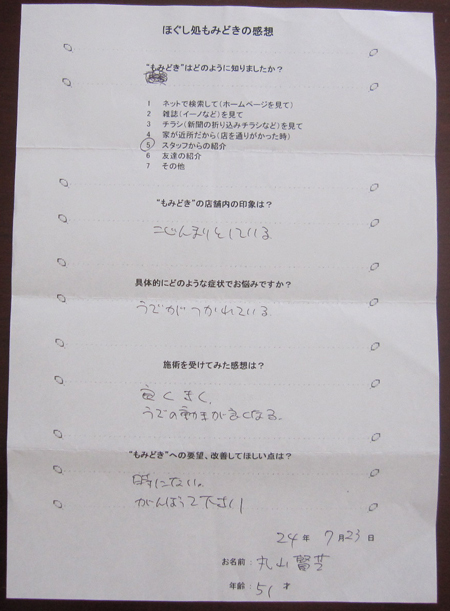 ほぐし処もみどきの感想
"もみどき"はどのように知りましたか？
1 ネットで検索して（ホームページを見て）
2 雑誌（イーノなど）を見て
3 チラシ（新聞の折り込みチラシなど）を見て
4 家が近所だから（店を通りがかった時）
5 スタッフからの紹介
6 友達の紹介
7 その他
"もみどき"の店舗内の印象は？
こじんまりとしている
具体的にどのような症状でお悩みですか？
うでがつかれている
施術を受けてみた感想は？
良くきく、
うでの動きが良くなる。
"もみどき"への要望、改善してほしい点は？
時にない。
がんばって下さい
24年 7月23日
お名前：丸山
年齢：51才